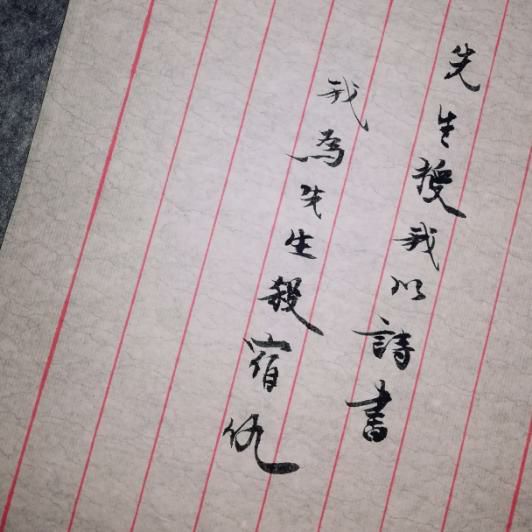 先生授我以詩書
我為先生殺宿仇